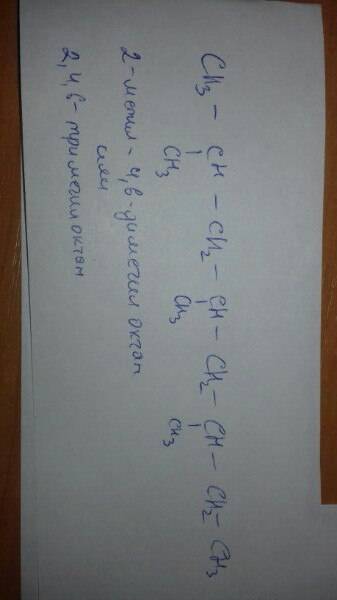 CH₃ – CH – CH₂ – CH – CH₂ – CH – CH₂ – CH₃
CH₃ CH₃ CH₃
2-метил-4,6-диметил октан
или
2,4,6-триметилоктан